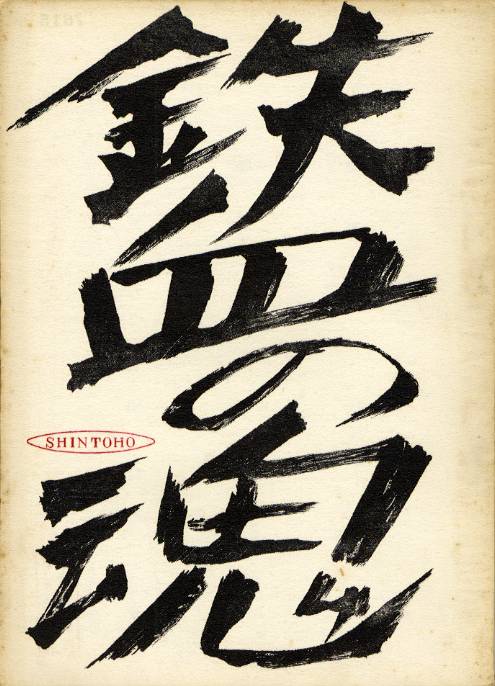 鉄血の魂
SHINTOHO